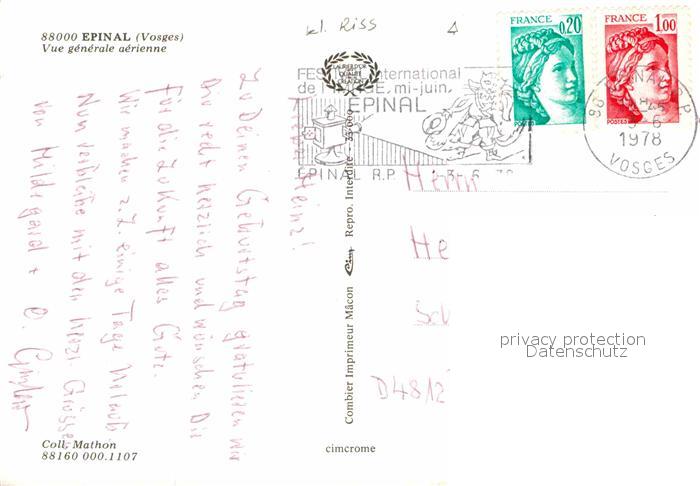 88000 EPINAL (Vosges)
Vue générale aérienne
kl. Riss
FRANCE
0,20
POSTES
FRANCE
1,00
POSTES
LAURIER D'OR
QUALITÉ
CRÉATION
international
mi-juin,
EPINAL
EPINAL R.P.
88
R.P
1978
VOSGES
Heinz!
Zu Deinem Geburtstag gratulieren wir
Dir recht herzlich und wünschen Dir
für die Zukunft alles Gute.
Wir machen z.Z. einige Tage Urlaub.
Nun verbleibe mit den herzl. Grüssen
von Hildegard +
Combier Imprimeur Mâcon Cim Repro. Interdite - 35.000
Herrn
He
Sch
D4812
privacy protection
Datenschutz
Coll. Mathon
88160 000.1107
cimcrome